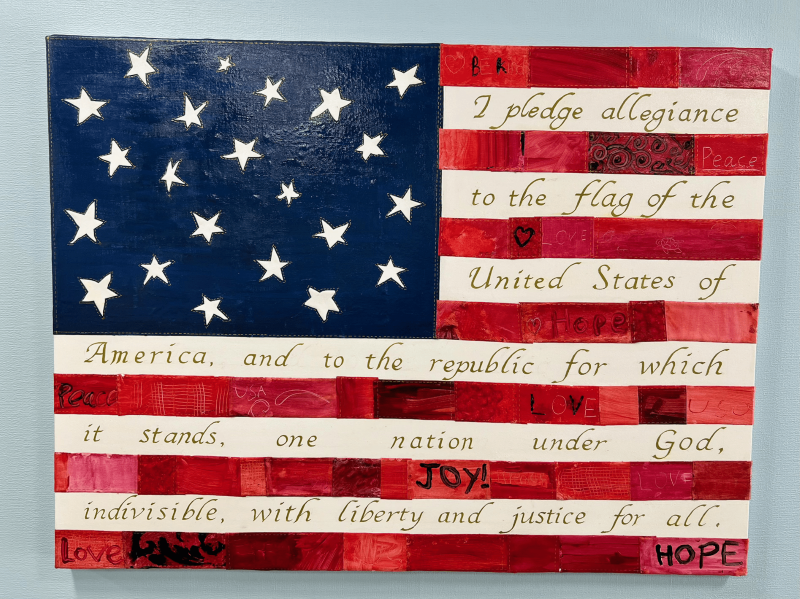 I pledge allegiance
Peace
to the flag of the
LOVE
United States of
Hope
America, and to the republic for which
Peace USA LOVE
it stands, one nation under God,
JOY! LOVE
indivisible, with liberty and justice for all.
Love HOPE